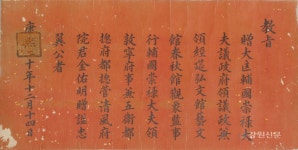 教旨
贈大匡輔國崇祿大
夫議政府領議政兼
領經筵弘文館藝文
館春秋館觀象監事
行輔國崇祿大夫領
敦寧府事兼五衛都
摠府都摠管清風府
院君金佑明贈謚忠
翼公者
康熙 十年十二月十四日
강원신문